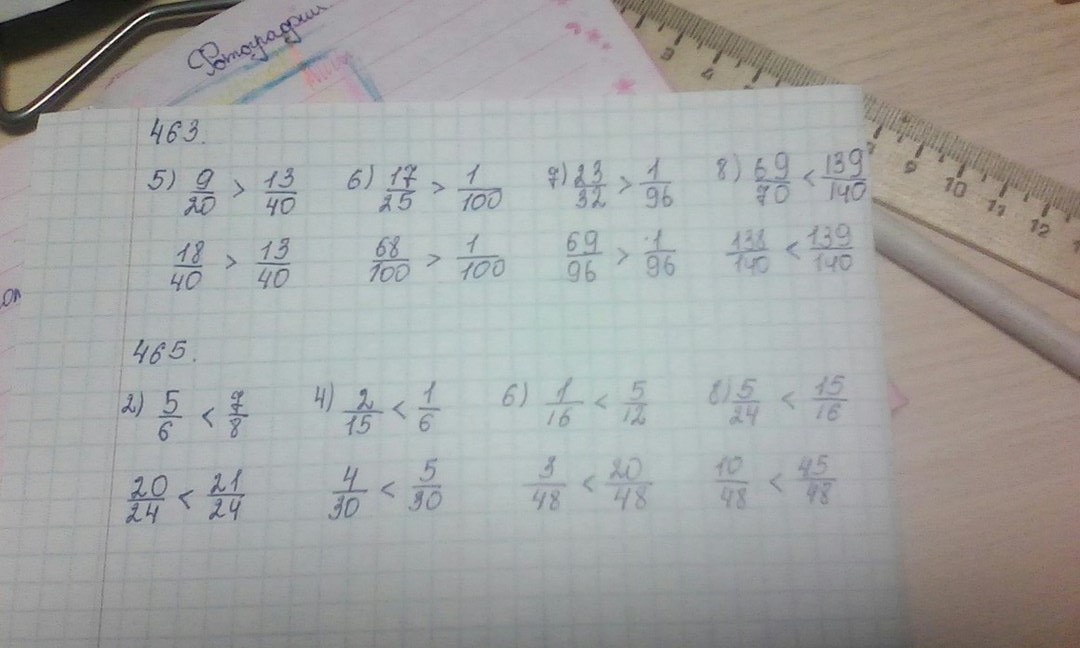 Фотографии
463.
5) 9/20 > 13/40 6) 17/25 > 1/100 7) 23/32 > 1/96 8) 69/70 < 139/140
18/40 > 13/40 68/100 > 1/100 69/96 > 1/96 138/140 < 139/140
465.
2) 5/6 < 7/8 4) 2/15 < 1/6 6) 1/16 < 5/12 8) 5/24 < 15/16
20/24 < 21/24 4/30 < 5/30 3/48 < 20/48 10/48 < 45/48
3 4 9 10 11 12